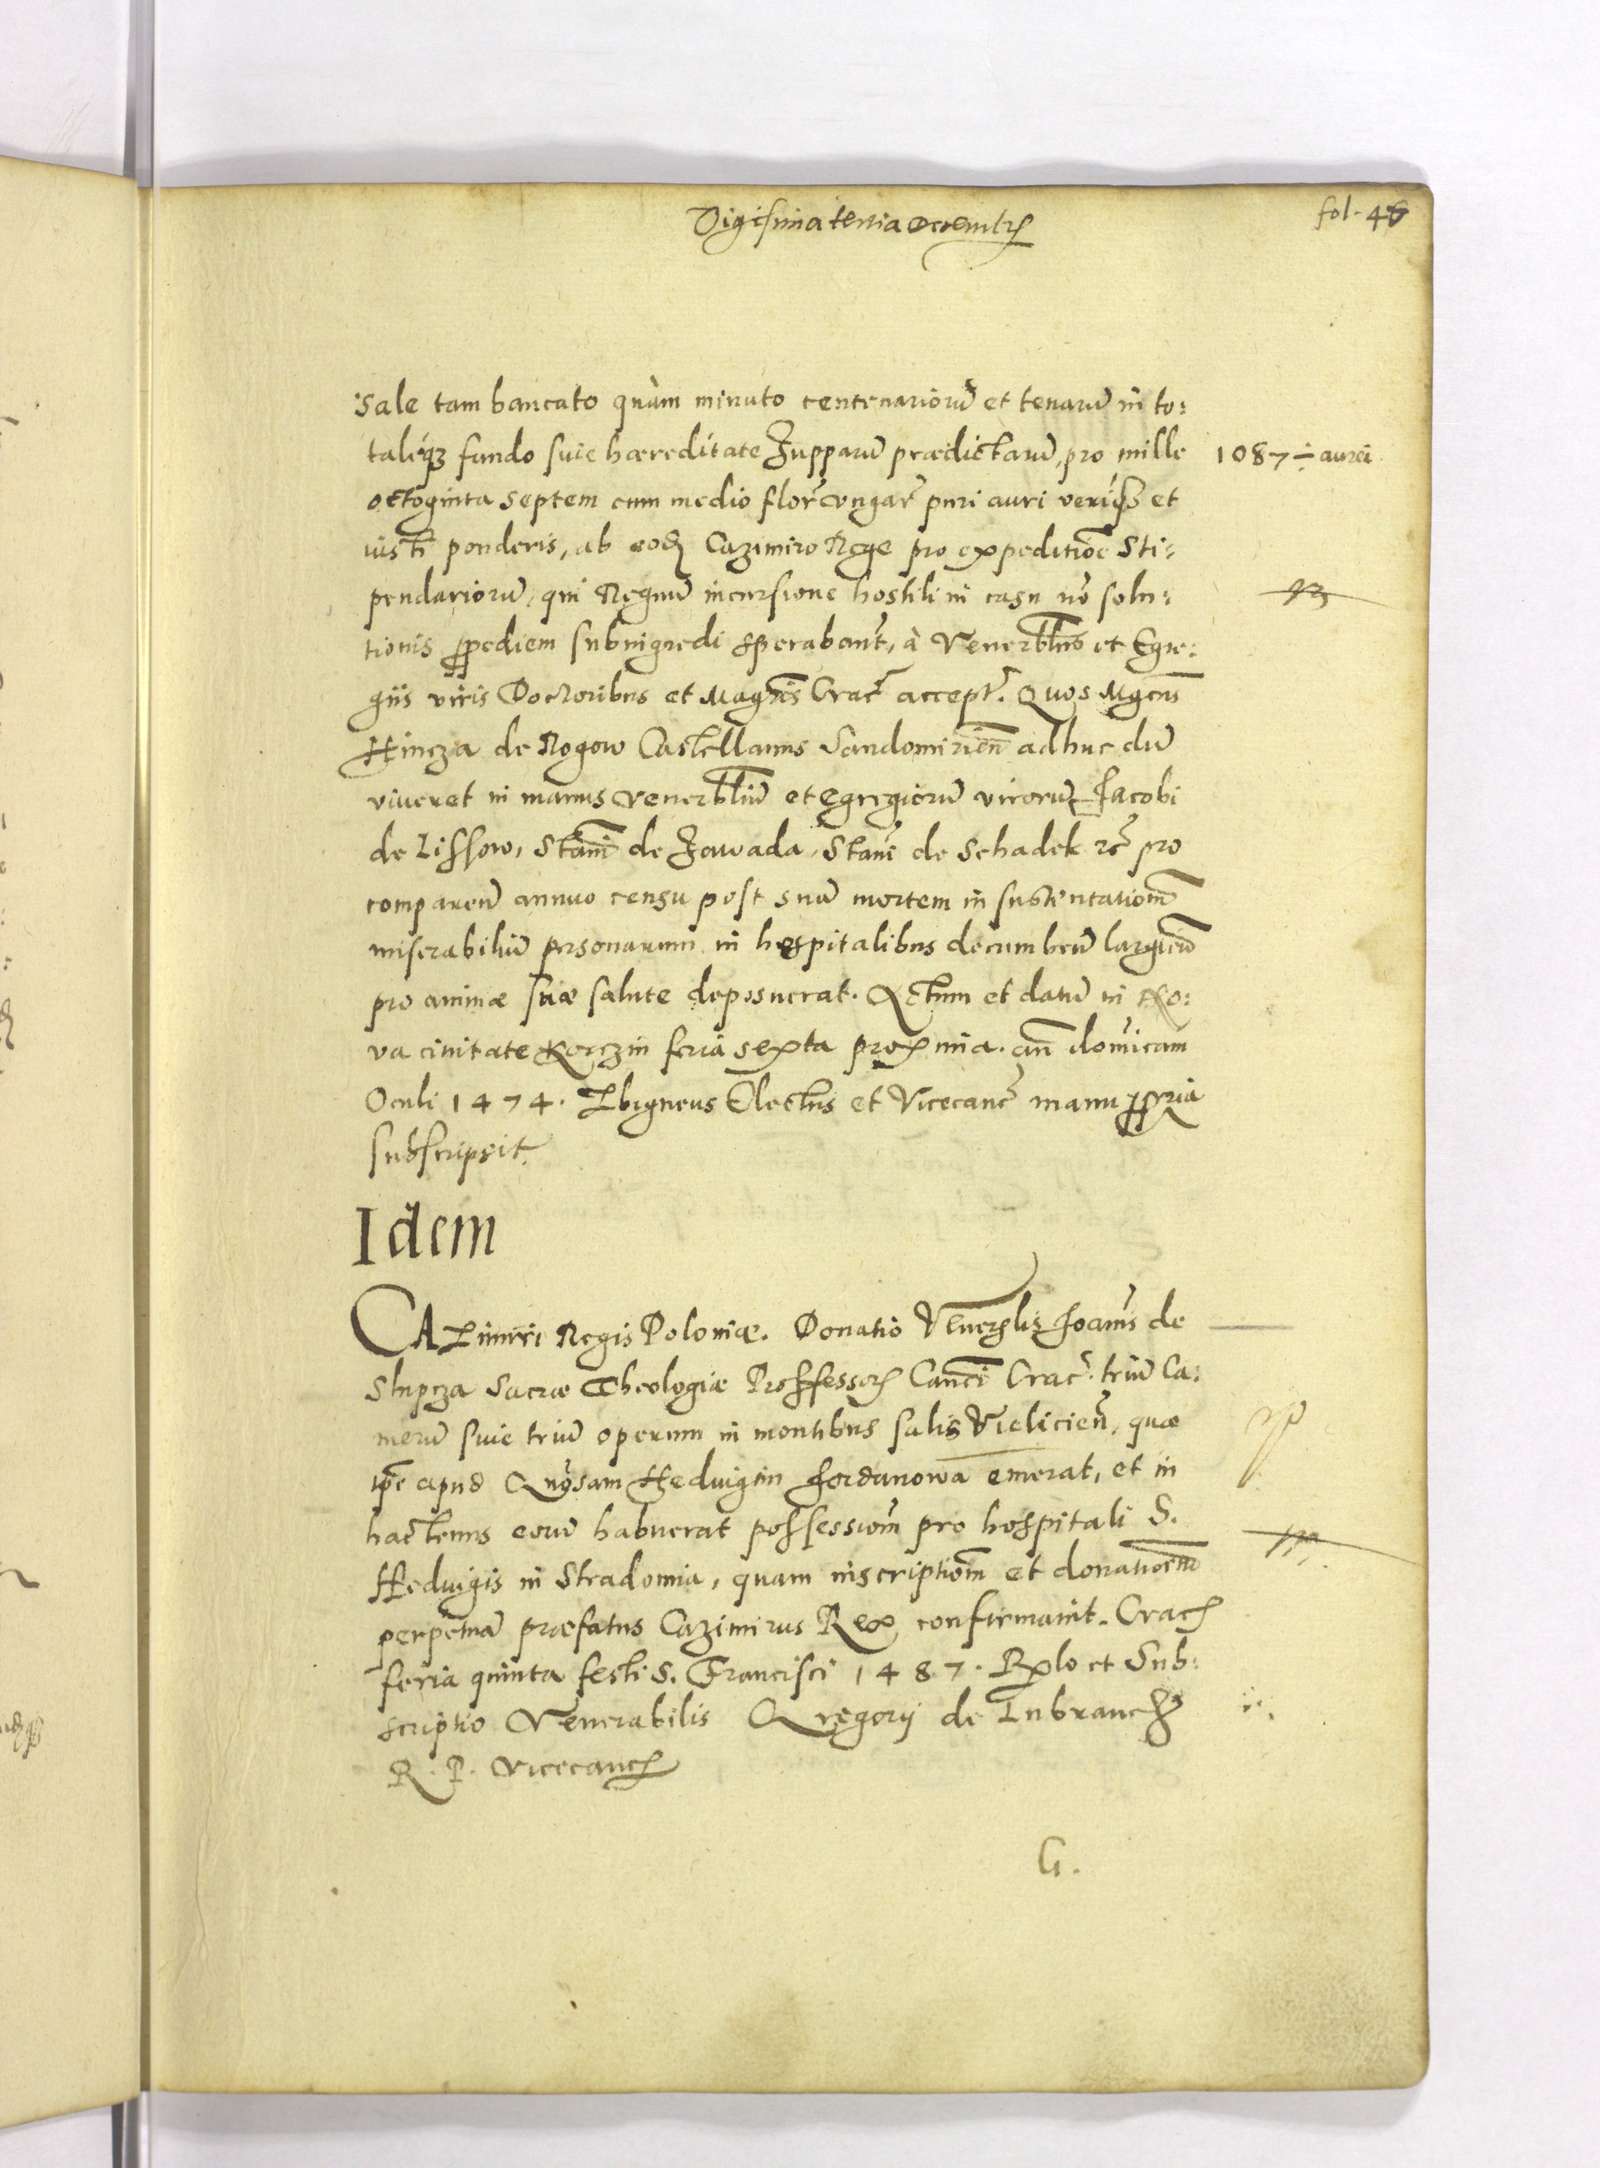 Vigesima tertia Decembris
fol. 46
Sale tam bancato quàm minuto centenariorũ et tenarũ in to:
taliq3 fundo siue hæreditate Zupparũ prædictarũ, pro mille
1087 ÷ aurei
octoginta septem cum medio flor̃ vngar̃ puri auri veriq3 et
iusti ponderis, ab eod̃ Cazimiro Rege pro expeditiõe Sti:
pendariorũ, qui Regnũ incursione hostili in casu nõ solu:
tionis propediem subingredi sperabant, à Venerblibus et Egre:
giis viris Doctoribus et Magr̃is Crac̃ accept̃. Quos Mgcus̃
Hincza de Rogow Castellanus Sandomirieñ adhuc dũ
viueret in manus venerbliũ et egregiorũ virorũ Jacobi
de Lissow, Stani de Zawada, Stani de Schadek rc̃ pro
comparen̄ annuo censu post suã mortem in sustentationẽ
miserabiliũ personarum in hospitalibus decumben̄ largien̄
pro animæ suæ salute deposuerat. Actum et datũ in No:
va ciuitate Korczin feria sexta proxima. añ domĩcam
Oculi 1474. Zbigneus Electus et Vicecanc̃ manu ppria
subscripsit.
Idem
CAZimiri Regis Poloniæ. Donatio Venerblis Joañis de
Slupcza Sacræ Theologiæ Professoris Canci Crac̃. triũ Ca:
merũ siue triũ operum in montibus salis Vielicieñ, quæ
ip̃e apud Quõsam Heduigim Jordanowã emerat, et in
hactenus eorũ habuerat possessionẽ pro hospitali S.
Heduigis in Stradomia, quam inscriptionẽ et donationẽm
perpetuã præfatus Cazimirus Rex confirmauit. Crac̃
feria quinta festi S. Francisci 1487. Rxlo et Sub:
scriptio Venerabilis Gregorij de Lubrancz
R. P. Vicecanc̃
G.